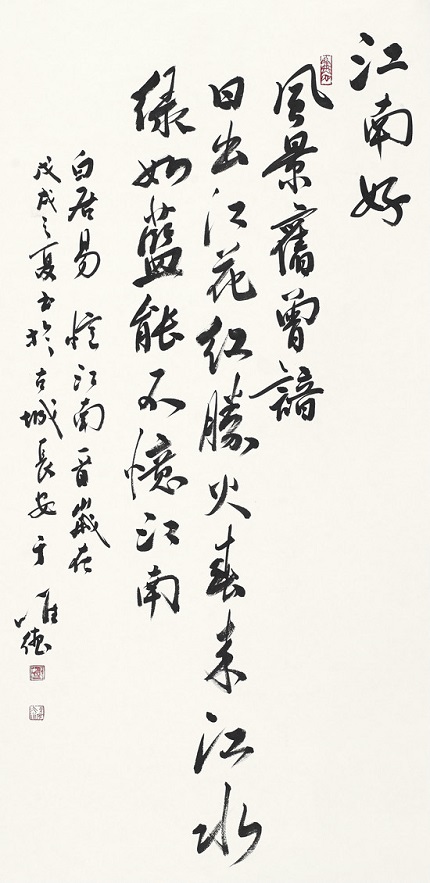 江南好
風景舊曾諳
日出江花紅勝火春来江水
緑如藍能不憶江南
白居易 憶江南一首歲在
戊戌之夏书於古城長安于唯德